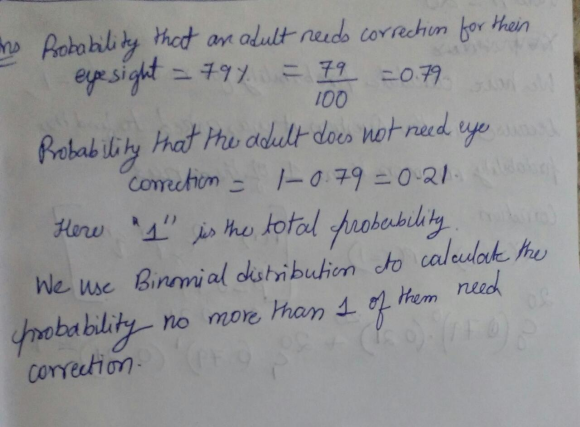 Ans Probability that an adult needs correction for their
eye sight = 79% = 79/100 = 0.79
Probability that the adult does not need eye
correction = 1-0.79 = 0.21
Here "1" is the total probability.
We use Binomial distribution to calculate the
probability no more than 1 of them need
correction.